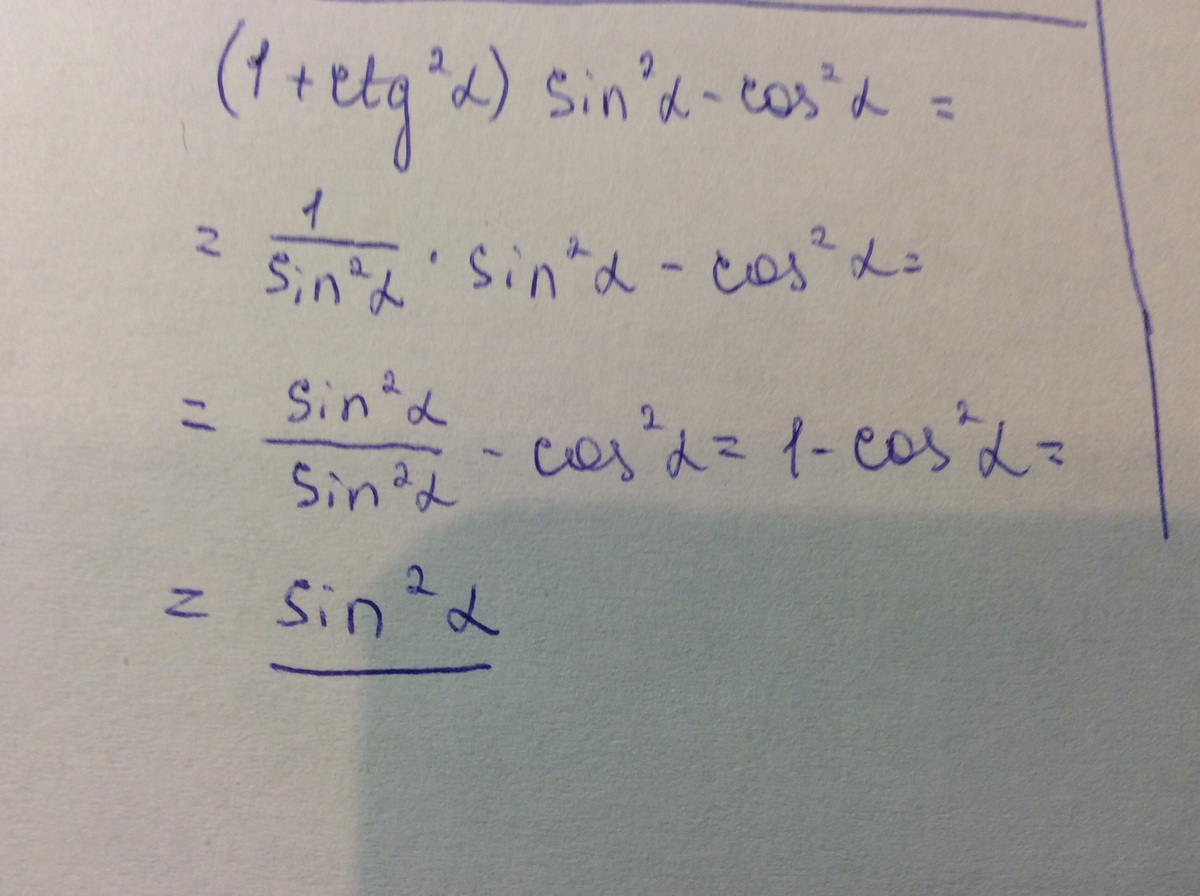 (1 + ctg²α) sin²α - cos²α =
= 1/sin²α · sin²α - cos²α =
= sin²α/sin²α - cos²α = 1 - cos²α =
= sin²α